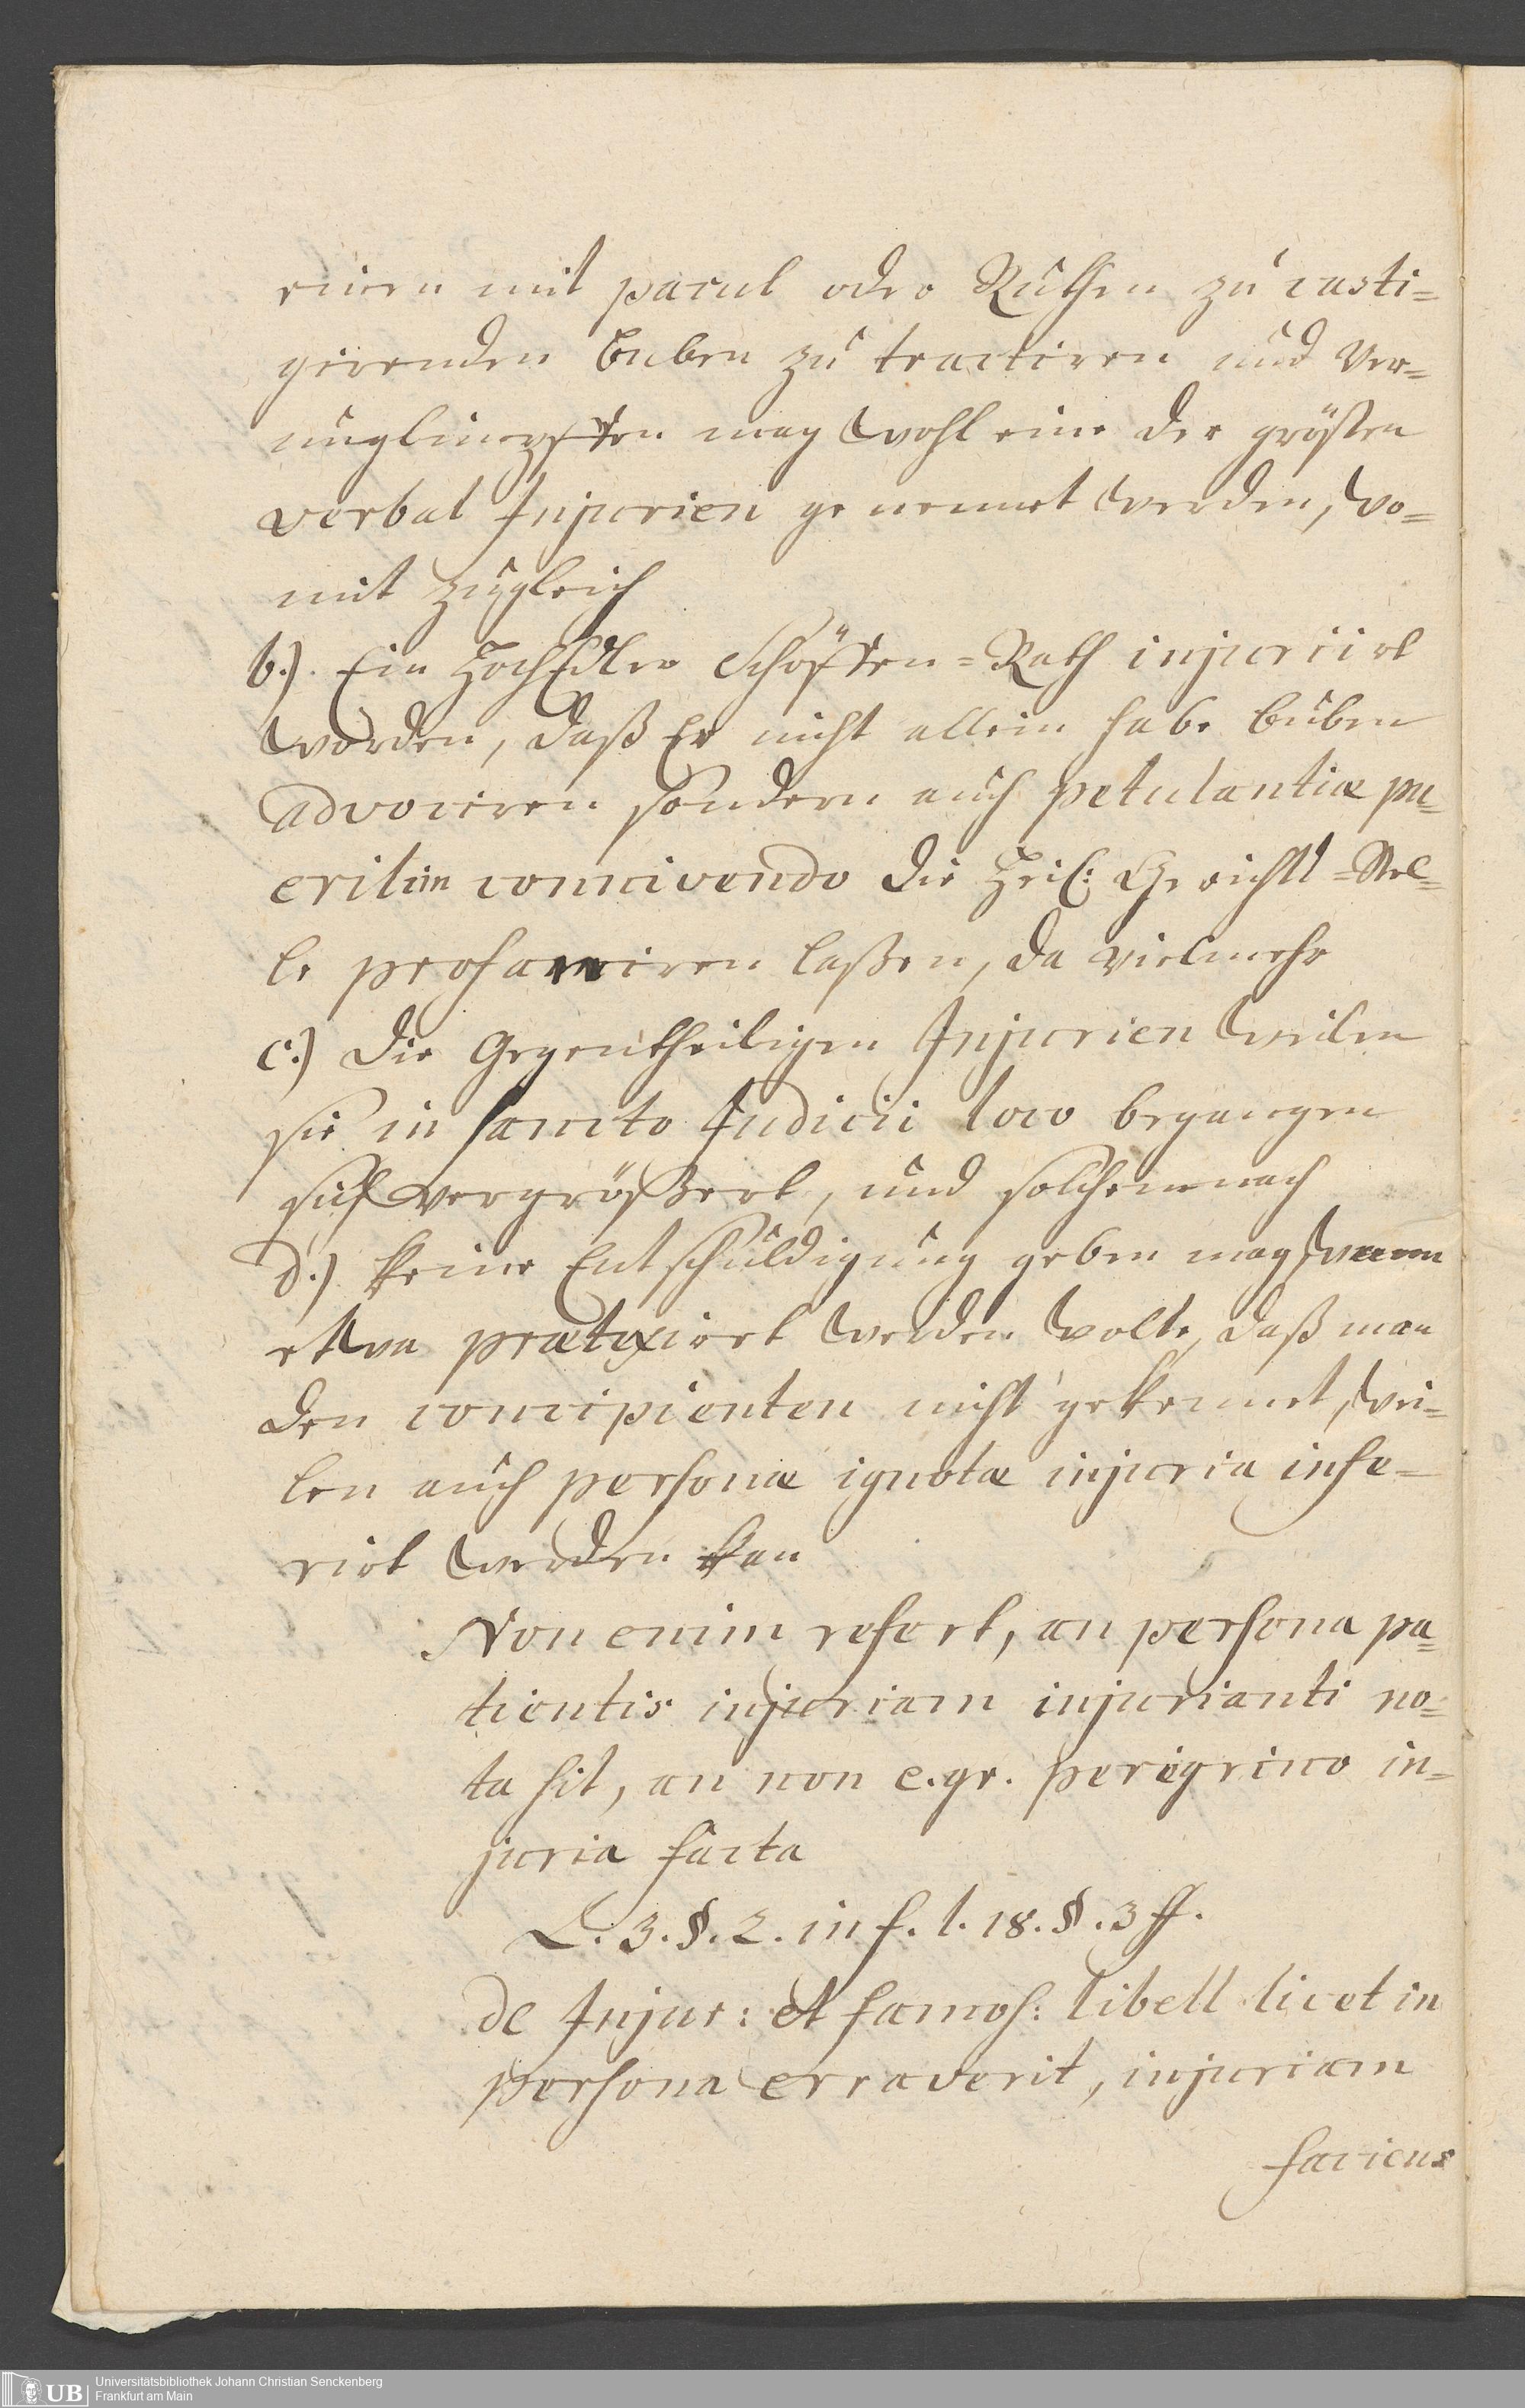 einen mit pacul oder Ruthen zu casti=
girenden buben zu tractiren und Ver=
unglimpffen mag wohl eine der grösten
verbal Injurien genennet werden, wo=
mit zugleich
b.) Ein HochEdler Schöffen=Rath injuriirt
worden, daß Er nicht allein habe buben
advociren sondern auch petulantiæ pu=
erilim connivendo die Heil: Gerichts=Stel=
le profaniren laßen, da vielmehr
c.) die Gegentheiligen Injurien weilen
sie in sancto Judicii loco begangen
sich vergrößert, und solchemnach
d.) keine Entschuldigung geben mag wann
etwa prætexirt werden wolte, daß man
den concipienten nicht gekennet, wei=
len auch personæ ignotæ injuria infe=
rirt werden kan
Non enim refert, an persona pa=
tientis injuriam injurianti no=
ta sit, an non e.gr. peregrino in=
juria facta
L. 3. §. 2. in f. l. 18. §. 3 ff.
de Injur: et famos: libell licet in
persona erraverit, injuriam
faciens
Universitätsbibliothek Johann Christian Senckenberg
Frankfurt am Main
UB